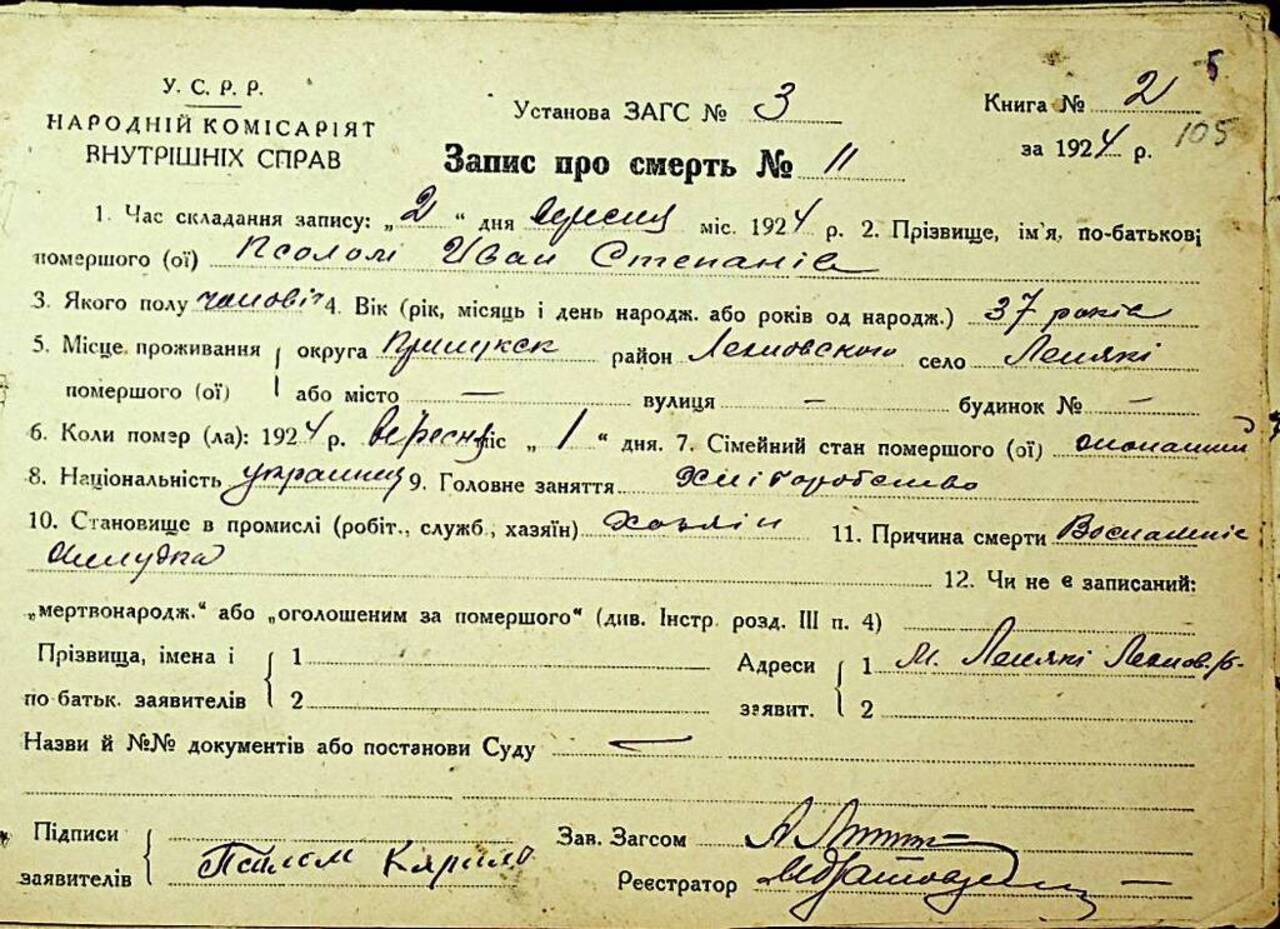 5
У. С. Р. Р.
НАРОДНІЙ КОМІСАРІЯТ
ВНУТРІШНІХ СПРАВ
Установа ЗАГС № 3
Книга № 2
за 1924 р. 105
Запис про смерть № 11
1. Час складання запису: „2“ дня вересня міс. 1924 р. 2. Прізвище, ім'я, по-батькові
помершого (ої) Псалом Иван Степанів
3. Якого полу чоловіч 4. Вік (рік, місяць і день народж. або років од народж.) 37 років
5. Місце проживання округа Прилукск район Леляковского село Леляки
помершого (ої) або місто — вулиця — будинок № —
6. Коли помер (ла): 1924 р. вересня міс „1“ дня. 7. Сімейний стан помершого (ої)
8. Національність украинец 9. Головне заняття Хліборобство
10. Становище в промислі (робіт., служб., хазяїн) Хозяїн 11. Причина смерти Воспаленіє
желудка
12. Чи не є записаний:
„мертвонародж.“ або „оголошеним за помершого“ (див. Інстр. розд. III п. 4)
Прізвища, імена і 1 Адреси 1 м. Леляки
по батьк. заявителів 2 заявит. 2
Назви й №№ документів або постанови Суду —
Підписи Зав. Загсом
заявителів Псалом Кирило
Реєстратор